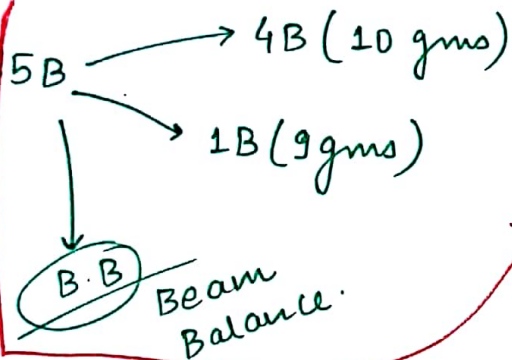 4B (10 gms)
5B
1B (9 gms)
B.B
Beam
Balance.